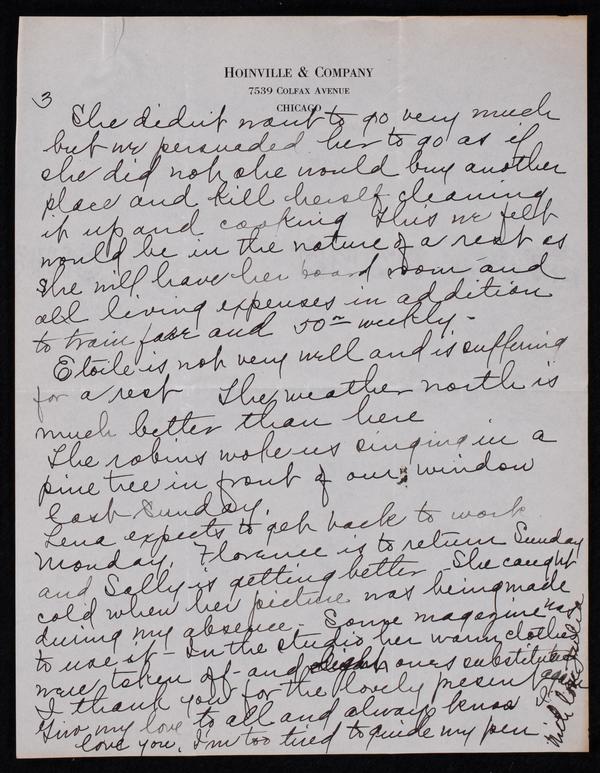 HOINVILLE & COMPANY
7539 COLFAX AVENUE
CHICAGO
3
She didn't want to go very much
but we persuaded her to go as if
she did not she would buy another
place and kill herself cleaning
it up and cooking Thus we felt
would be in the nature of a rest as
she will have her board room and
all living expenses in addition
to train fare and 50 weekly -
Etoile is not very well and is suffering
for a rest The weather north is
much better than here
The robins woke us singing in a
pine tree in front of our window
last Sunday.
Lena expects to get back to work
Monday. Florence is to return Sunday
and Sally is getting better - She caught
cold when her picture was being made
during my absence - Some magazine was
to use it - In the studio her warm clothes
were taken off - and light ones substituted
I thank you for the lovely present
Give my love to all and always know I
love you. I'm too tired to guide my pen
again
with love